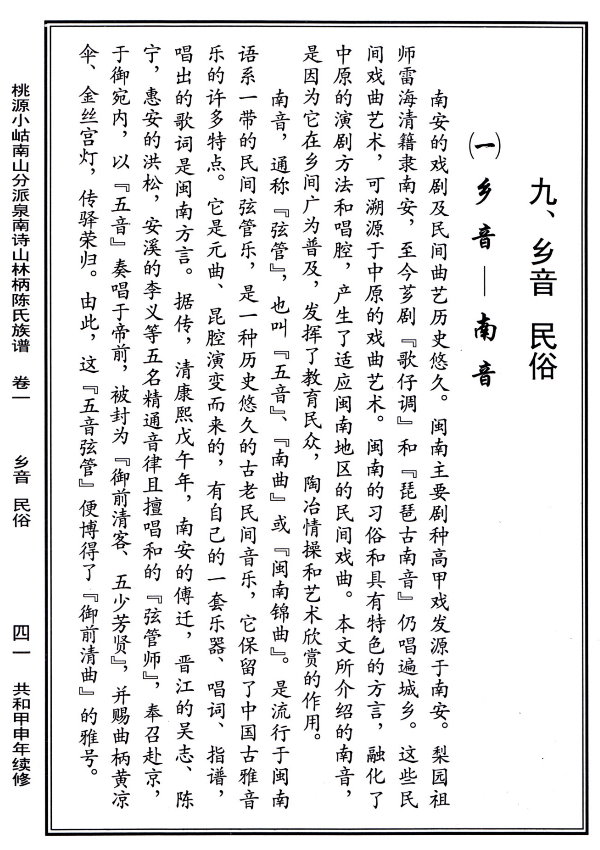 九、乡音 民俗
㈠乡音—南音
南安的戏剧及民间曲艺历史悠久。闽南主要剧种高甲戏发源于南安。梨园祖
师雷海清籍隶南安，至今芗剧『歌仔调』和『琵琶古南音』仍唱遍城乡。这些民
间戏曲艺术，可溯源于中原的戏曲艺术。闽南的习俗和具有特色的方言，融化了
中原的演剧方法和唱腔，产生了适应闽南地区的民间戏曲。本文所介绍的南音，
是因为它在乡间广为普及，发挥了教育民众，陶冶情操和艺术欣赏的作用。
南音，通称『弦管』，也叫『五音』、『南曲』或『闽南锦曲』。是流行于闽南
语系一带的民间弦管乐，是一种历史悠久的古老民间音乐，它保留了中国古雅音
乐的许多特点。它是元曲、昆腔演变而来的，有自己的一套乐器、唱词、指谱，
唱出的歌词是闽南方言。据传，清康熙戊午年，南安的傅迁，晋江的吴志、陈
宁，惠安的洪松，安溪的李义等五名精通音律且擅唱和的『弦管师』，奉召赴京，
于御宛内，以『五音』奏唱于帝前，被封为『御前清客、五少芳贤』，并赐曲柄黄凉
伞、金丝宫灯，传驿荣归。由此，这『五音弦管』便博得了『御前清曲』的雅号。
桃源小岵南山分派泉南诗山林柄陈氏族谱 卷一 乡音 民俗 四一 共和甲申年续修